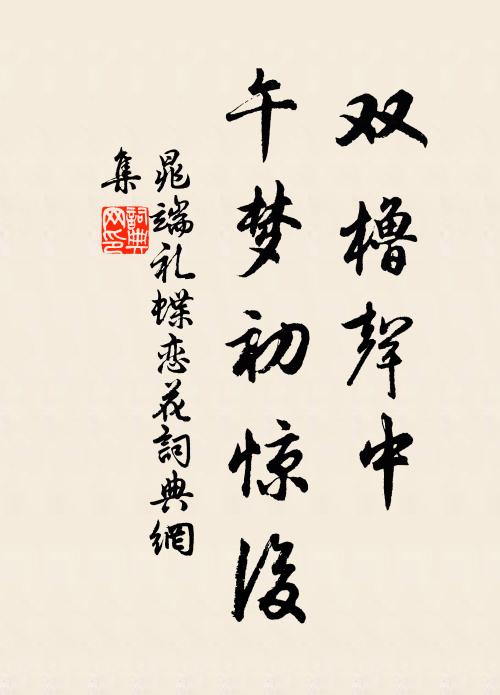 双櫓聲中
午梦初惊後
晁端礼蝶恋花詞典網
集
詞典
网印